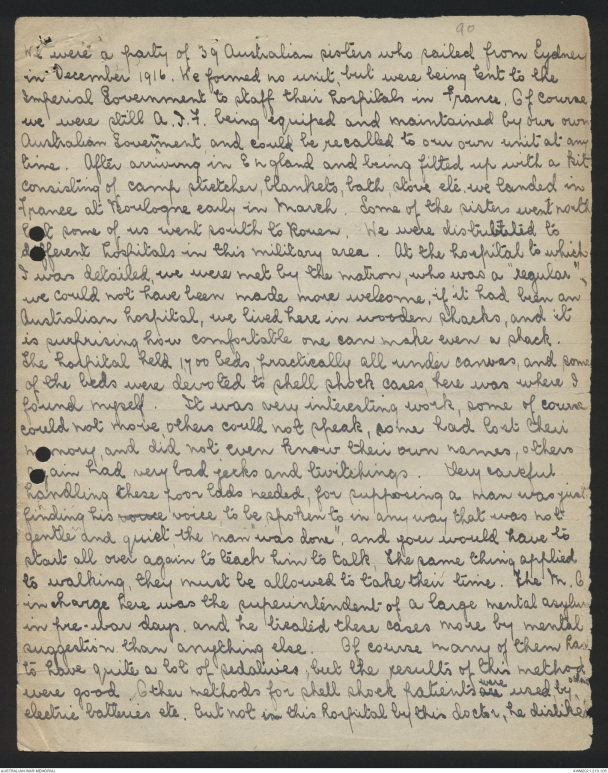 90
We were a party of 39 Australian sisters who sailed from Sydney
in December 1916. We formed no unit, but were being lent to the
Imperial Government to staff their hospitals in France. Of course
we were still A.I.F. being equiped and maintained by our own
Australian Goverment, and could be recalled to our own unit at any
time. After arriving in England and being fitted up with a kit
consisting of camp stretcher, blankets, bath, stove etc. we landed in
France at Boulogne early in March. Some of the sisters went north
but some of us went south to Rouen. We were distributed to
different hospitals in this military area. At the hospital to which
I was detailed, we were met by the matron, who was a "regular",
we could not have been made more welcome, if it had been an
Australian hospital, we lived here in wooden shacks, and it
is surprising how comfortable one can make even a shack.
The hospital held 1700 beds practically all under canvas, and some
of the beds were devoted to shell shock cases, here was where I
found myself. It was very interesting work, some of course
could not move, others could not speak, some had lost their
memory, and did not even know their own names, others
again had very bad jerks and twitchings. Very careful
handling these poor lads needed, for supposing a man was just
finding his voice to be spoken to in any way that was not
gentle and quiet, the man "was done", and you would have to
start all over again to teach him to talk, the same thing applied
to walking, they must be allowed to take their time. The M.O
in charge here was the superintendent of a large mental asylum
in pre-war days. and he treated these cases more by mental
suggestion than anything else. Of course many of them had
to have quite a lot of sedatives, but the results of this method
were good. Other methods for shell shock patients were used by others
electric batteries etc. but not in this hospital by this doctor, he disliked
AUSTRALIAN WAR MEMORIAL
AWM2021.219.105